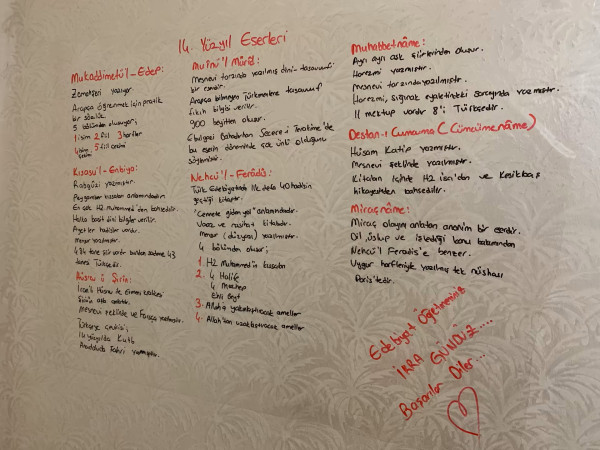 14. Yüzyıl Eserleri
Mukaddimetü'l-Edep:
Zemahşeri yazıyor.
Arapça öğrenmek için pratik
bir sözlük.
5 bölümden oluşuyor;
1 isim 2 fiil 3 harfler
4 isim çekimi 5 fiil çekimi
Kısasü'l-Enbiya:
Rabguzi yazmıştır.
Peygamber kıssaları anlamındadır.
En çok Hz Muhammed'den bahsedilir.
Halka basit dini bilgiler verilir.
Ayetler hadisler vardır.
Mensur yazılmıştır.
484 tane şiir vardır bunların sadece 43
tanesi Türkçedir.
Hüsrev ü Şirin:
İran'lı Hüsrev ile Ermeni melikesi
Şirin'in aşkı anlatılır.
Mesnevi şeklinde ve Farsça yazılmıştır.
Türkçeye çevirisi;
14. yüzyılda Kutb
Muînü'l Mürîd:
Mesnevi tarzında yazılmış dini-tasavvufi
bir eserdir.
Arapça bilmeyen Türkmenlere tasavvuf
fıkıh bilgisi verilir.
900 beyitten oluşur.
Ebulgazi Bahadırhan Şecere-i Terakime'de
bu eserin döneminde çok ünlü olduğunu
söylemiştir.
Nehcü'l-Ferâdis:
Türk Edebiyatında ilk defa 40 hadisin
geçtiği kitaptır.
"Cennete giden yol" anlamındadır.
Vaaz ve nasihat kitabıdır.
Mensur (düzyazı) yazılmıştır.
4 bölümden oluşur;
1. Hz Muhammed'in kıssaları
2. 4 Halife
4 Mezhep
Ehli Beyt
3. Allah'a yakınlaştıracak ameller
4. Allah'tan uzaklaştıracak ameller
Muhabbetnâme:
Ayrı ayrı aşk şiirlerinden oluşur.
Harezmi yazmıştır.
Mesnevi tarzında yazılmıştır.
Harezmi, Sığnak eyaletindeki sarayında yazmıştır.
11 mektup vardır 8'i Türkçedir.
Destan-ı Cumcuma (Cümcümenâme)
Hüsam Katip yazmıştır.
Mesnevi şeklinde yazılmıştır.
Kitabın içinde Hz İsa'dan ve Kesikbaş
hikayesinden bahsedilir.
Miraçnâme:
Miraç olayını anlatan anonim bir eserdir.
Dil, üslup ve işlediği konu bakımından
Nehcü'l Feradis'e benzer.
Uygur harfleriyle yazılmış tek nüshası
Paris'tedir.
Edebiyat Öğretmeniniz
İRRA GÜNDÜZ....
Başarılar Diler...